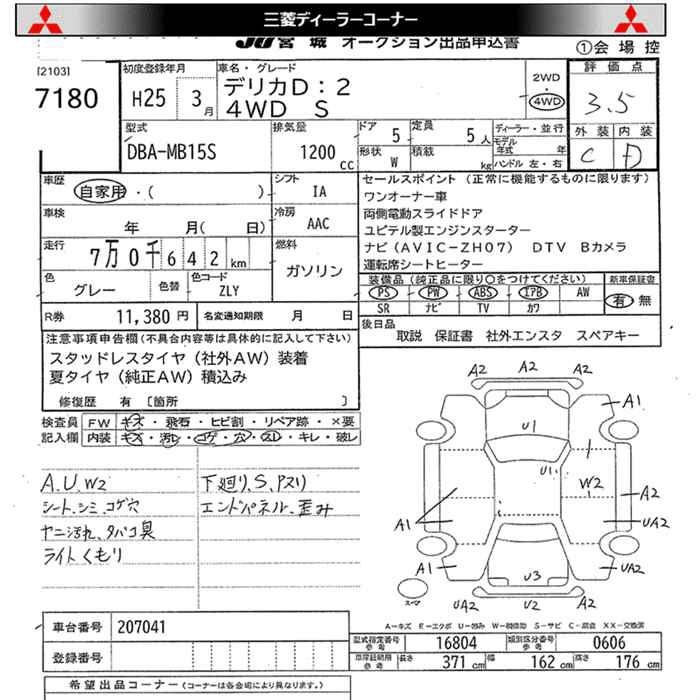 三菱ディーラーコーナー
JU宮城 オークション出品申込書
①会場控
[2103]
7180
初度登録年月
H25 3月
車名・グレード
デリカD:2
4WD S
2WD
4WD
評価点
3.5
外装 内装
C D
型式
DBA-MB15S
排気量
1200 cc
ドア 5
定員 5人
形状 W
積載 kg
ディーラー・並行
モデル年式 年
ハンドル 左・右
車歴
自家用・( )
シフト
IA
車検
年 月( 日)
冷房
AAC
走行
7万0千642km
燃料
ガソリン
色
グレー
色替
色コード
ZLY
R券 11,380円
名変通知期限 月 日
セールスポイント (正常に機能するものに限ります)
ワンオーナー車
両側電動スライドドア
ユピテル製エンジンスターター
ナビ(AVIC-ZH07) DTV Bカメラ
運転席シートヒーター
装備品(純正品に限り○をつけてください)
新車保証書
PS PW ABS エアB AW
SR ナビ TV カワ
有 無
後日品
取説 保証書 社外エンスタ スペアキー
注意事項申告欄(不具合内容等は具体的に記入して下さい)
スタッドレスタイヤ(社外AW)装着
夏タイヤ(純正AW)積込み
修復歴 有〔箇所 〕
検査員記入欄
FW キズ・飛石・ヒビ割・リペア跡・×要
内装 キズ・汚レ・コゲ・穴・スレ・キレ・破レ
A.U.W2
シート、シミ、コゲ穴
ヤニ汚れ、タバコ臭
ライトくもり
下廻り、S、Pスリ
エンドパネル、歪み
A2 A2
A1
U1
U1
W2
A2
A1
UA2
A1
U3
UA2
スペア
UA2 A2
A-キズ E-エクボ U-凹み W-補修跡 S-サビ C-腐食 XX-交換済
車台番号 207041
登録番号
型式指定番号 参考 16804
類別区分番号 参考 0606
車庫証明用 参考 長さ 371cm 幅 162cm 高さ 176cm
希望出品コーナー (コーナーは各会場により異なります。)